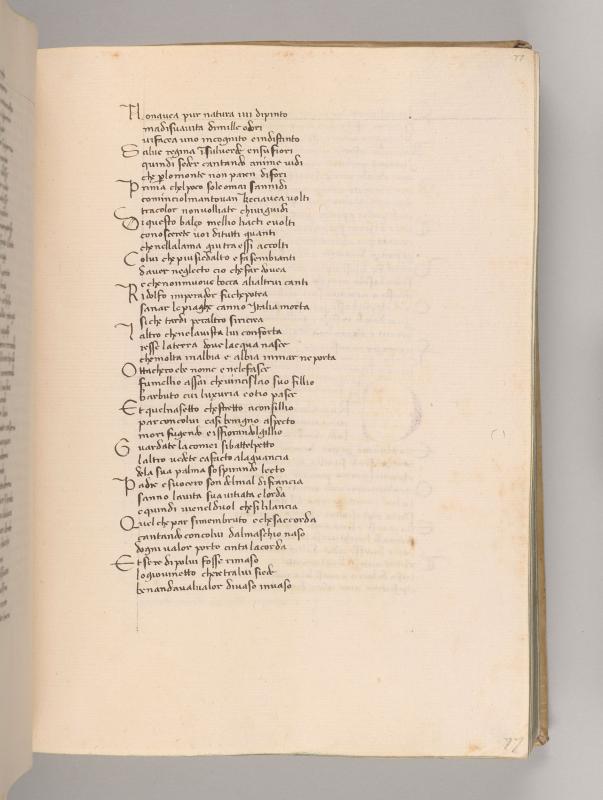 77
Nonavea pur natura ivi dipinto
madisuavita dimille odori
vifacea uno incognito eindistinto
Salve regina insulverde ensu fiori
quindi seder cantando anime vidi
che plomonte non parien difori
Prima chelpoco sole omai sannidi
cominciolmantovan checiavea volti
tracolor nonvolliate chivi guidi
Di questo balço mellio liacti evolti
conoscerete voi ditutti quanti
chenellalama giutra essi accolti
Colui che piusiedalto e fa sembianti
daver neglecto cio chefar dovea
e chenonmuove bocca alialtrui canti
Ridolfo imperador fuchepotea
sanar lepiaghe canno Italia morta
siche tardi peraltro siricrea
Laltro chenelavista lui conforta
resse laterra dove lacqua nasce
chemolta inalbia e albia inmar ne porta
Ottachero ebe nome e nelefasce
fumellio assai chevincislao suo fillio
barbuto cui luxuria eotio pasce
Et quelnasetto chestretto aconsillio
par concolui casi benigno aspecto
mori fugendo eisfiorandolgillio
Guardate lacomei sibattelpetto
laltro vedete cafacto alaguancia
dela sua palma sospirando lecto
Padre esuocero son delmal difrancia
sanno lavita sua vitiata elorda
equindi vieneldiuol chesililancia
Quel che par simembruto echesaccorda
cantando concolui dalmaschio naso
dogni valor porto cinta lacorda
Et se re dipolui fosse rimaso
logiovinetto cheretralui siede
benandavalvalor divaso invaso
77